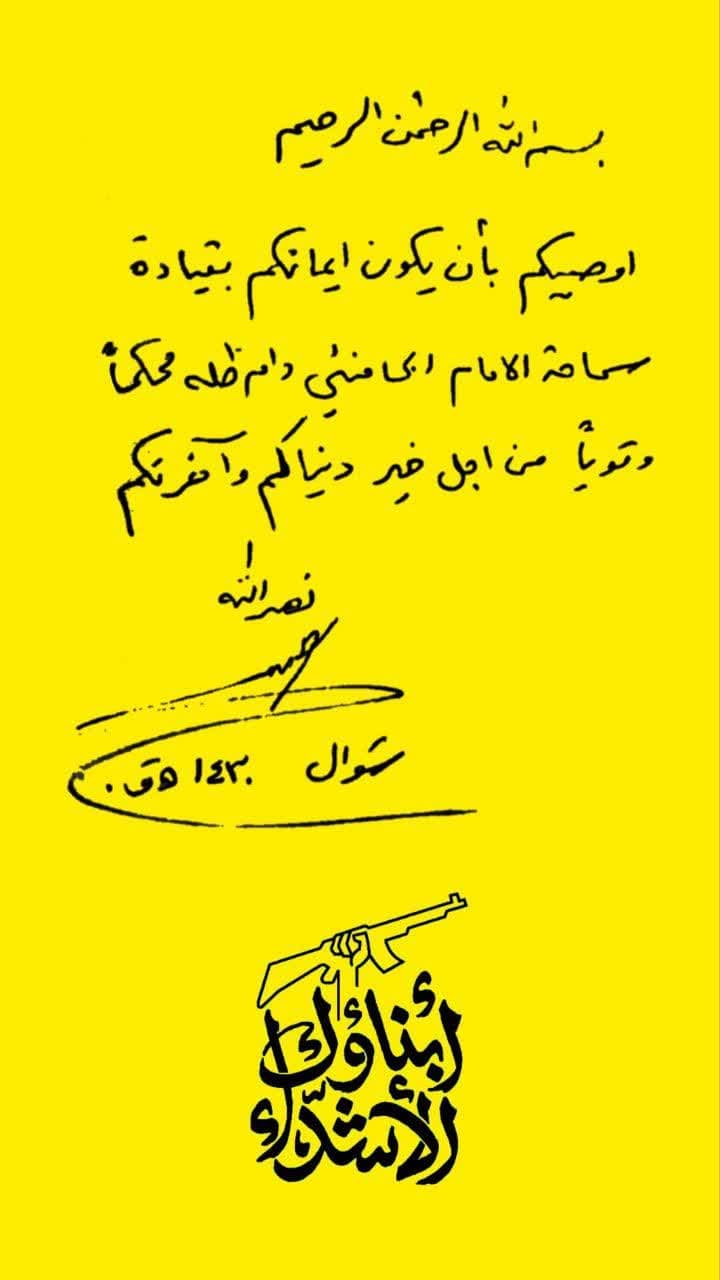 بسم الله الرحمن الرحيم
اوصيكم بأن يكون ايمانكم بقيادة
سماحة الامام الخامنئي دام ظله محكماً
وقوياً من اجل خير دنياكم وآخرتكم
نصرالله
شوال ١٤٣٠ هـق.
أبناؤك
الأشدّاء